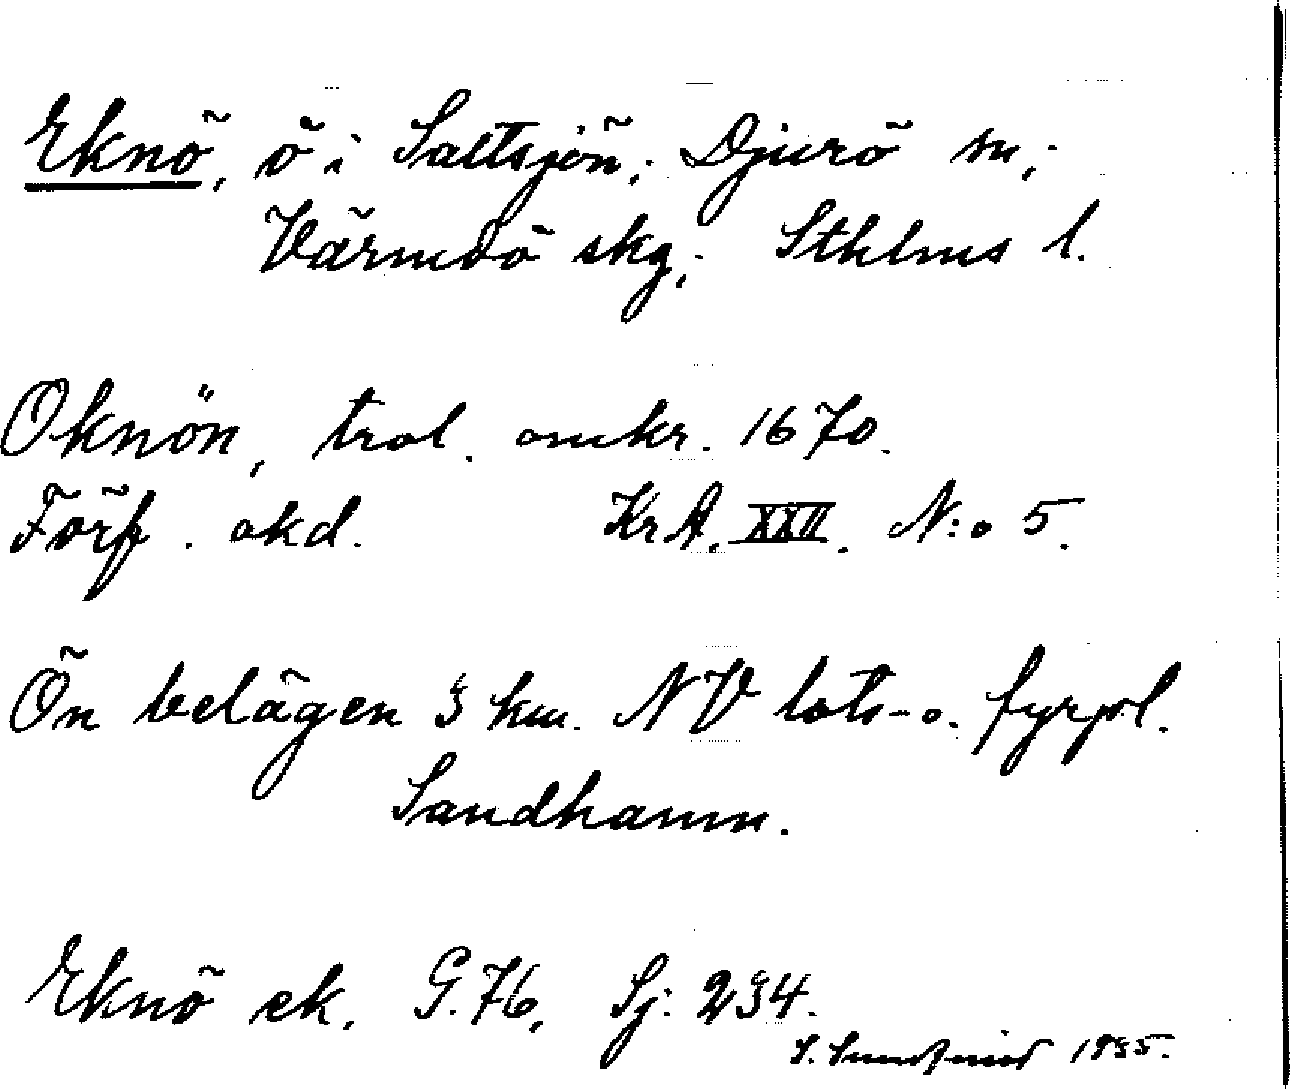 Eknö, ö i Saltsjön; Djurö sn;
Värmdö skg; Sthlms l.
Oknön, trol. omkr. 1670.
Förf. okd. KrA. XXII. N:o 5.
Ön belägen 3 km. NV lots- o. fyrpl.
Sandhamn.
Eknö ek. G.76, Sj: 234.
1935.